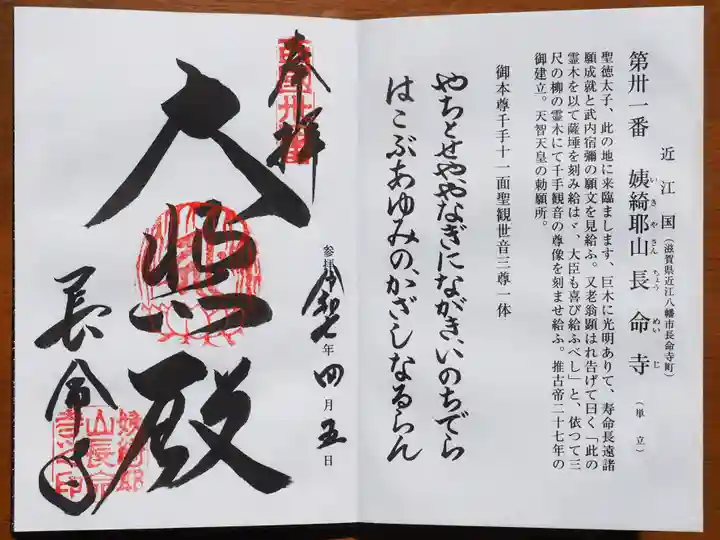 第卅一番
近江国(滋賀県近江八幡市長命寺町)
姨綺耶山 長命寺(単立)
いきやさん ちょうめいじ
聖徳太子、此の地に来臨まします、巨木に光明ありて、寿命長遠諸
願成就と武内宿彌の願文を見給ふ。又老翁顕はれ告げて曰く「此の
霊木を以て薩埵を刻み給はゞ、大臣も喜び給ふべし」と、依つて三
尺の柳の霊木にて千手観音の尊像を刻ませ給ふ。推古帝二十七年の
御建立。天智天皇の勅願所。
御本尊千手十一面聖観世音三尊一体
やちとせややなぎにながきいのちでら
はこぶあゆみのかざしなるらん
奉拝
西国卅一番
大悲殿
長命寺
参拝 令和七年四月五日
姨綺耶
山長命
寺之印